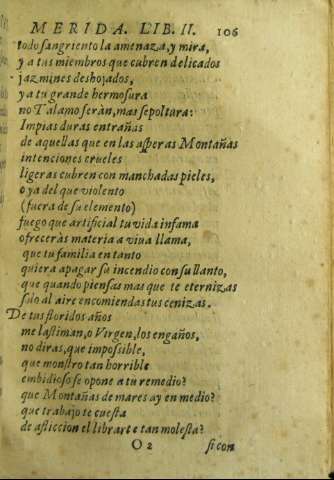 MERIDA. LIB. II. 106
todo sangriento la amenaza, y mira,
y a tus miembros que cubren delicados
jazmines deshojados,
y a tu grande hermosura
no Talamo seràn, mas sepoltura:
Impias duras entrañas
de aquellas que en las asperas Montañas
intenciones crueles
ligeras cubren con manchadas pieles,
o ya del que violento
(fuera de su elemento)
fuego que artificial tu vida infama
ofreceràs materia a viua llama,
que tu familia en tanto
quiera apagar su incendio con su llanto,
que quando piensas mas que te eternizas
solo al aire encomiendas tus cenizas.
De tus floridos años
me lastiman, o Virgen, los engaños,
no diras, que impossible,
que monstro tan horrible
embidioso se opone a tu remedio?
que Montañas de mares ay en medio?
que trabajo te cuesta
de afliccion el librarte tan molesta?
O 2 si con